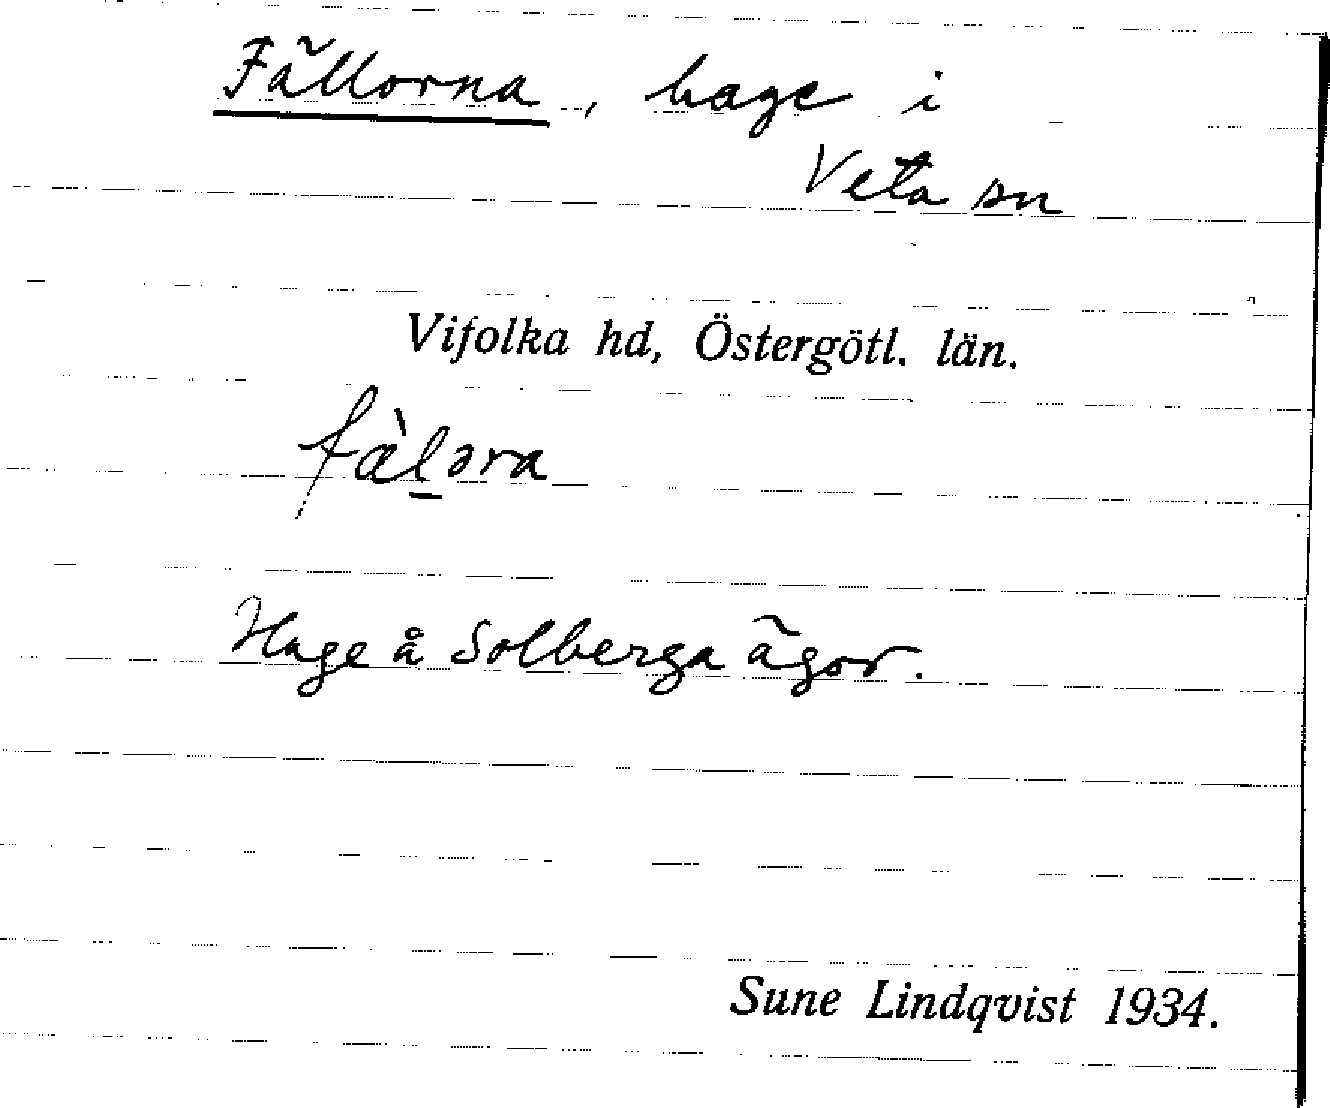 Fällorna, hage i
Veta sn
Vifolka hd, Östergötl. län.
fàl̠ɔra
Hage å Solberga ägor.
Sune Lindqvist 1934.